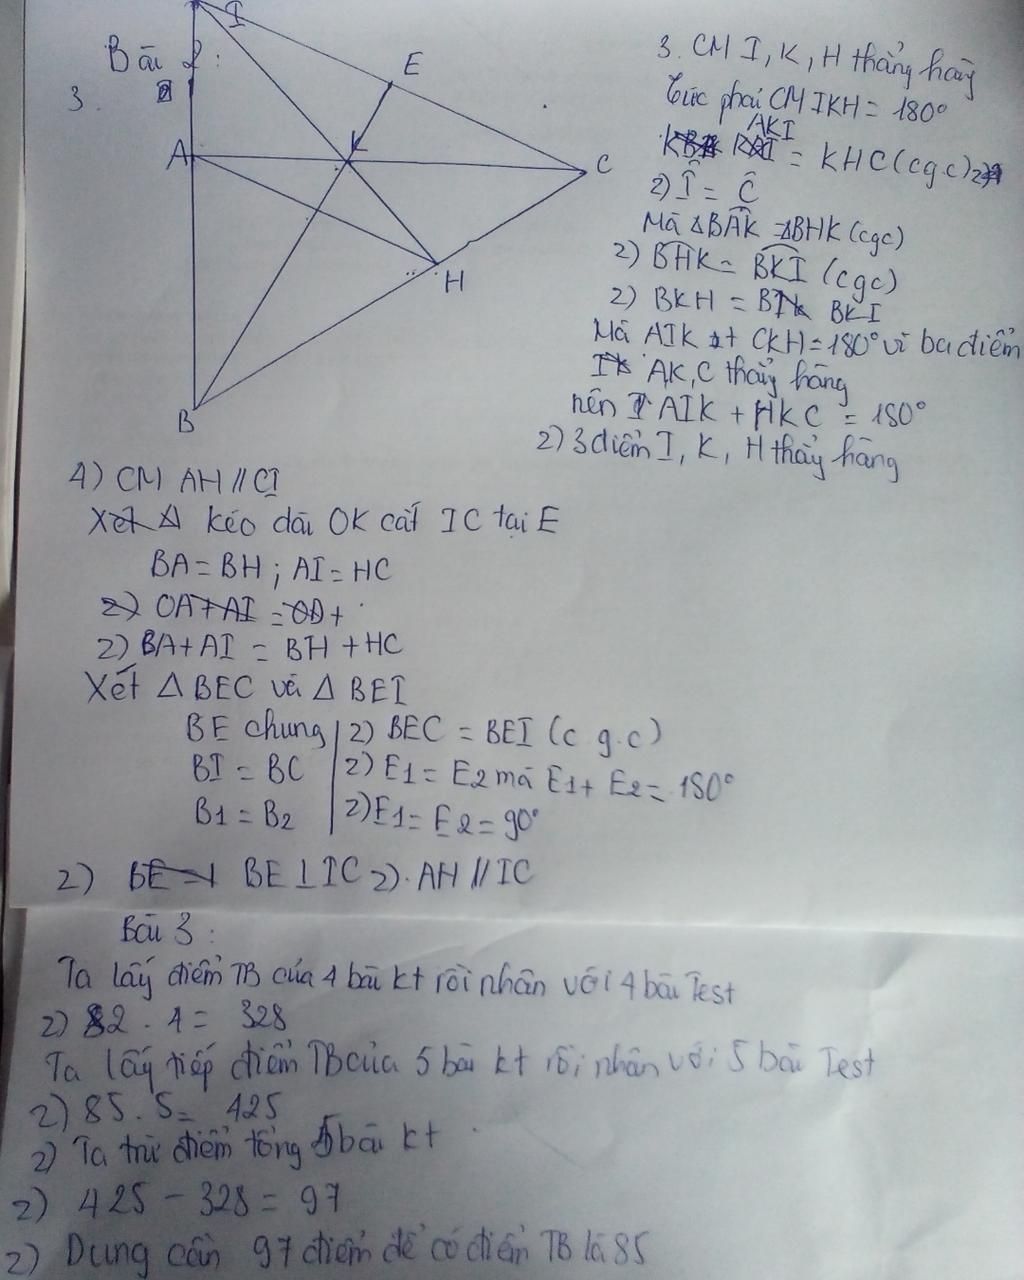 I
Bài 2:
3.
E
A
K
C
H
B
3. CM I, K, H thẳng hàng
Tức phải CM IKH = 180°
AKI
= KHC (cgc)
2) Î = Ĉ
Mà ΔBAK = ΔBHK (cgc)
2) BHK = BKI (cgc)
2) BKH = BKI
Mà AIK + CKH = 180° vì ba điểm
AK, C thẳng hàng
nên AIK + HKC = 180°
2) 3 điểm I, K, H thẳng hàng
4) CM AH // CI
Xét Δ kéo dài OK cắt IC tại E
BA = BH ; AI = HC
2) OA + AI = OD +
2) BA + AI = BH + HC
Xét Δ BEC và Δ BEI
BE chung | 2) BEC = BEI (c g.c)
BI = BC | 2) E1 = E2 mà E1 + E2 = 180°
B1 = B2 | 2) E1 = E2 = 90°
2) BE ⊥ IC 2). AH // IC
Bài 3 :
Ta lấy điểm TB của 4 bài kt rồi nhân với 4 bài Test
2) 82 . 4 = 328
Ta lấy tiếp điểm TB của 5 bài kt rồi nhân với 5 bài Test
2) 85 . 5 = 425
2) Ta trừ điểm tổng 5 bài kt
2) 425 - 328 = 97
2) Dung cần 97 điểm để có điểm TB là 85